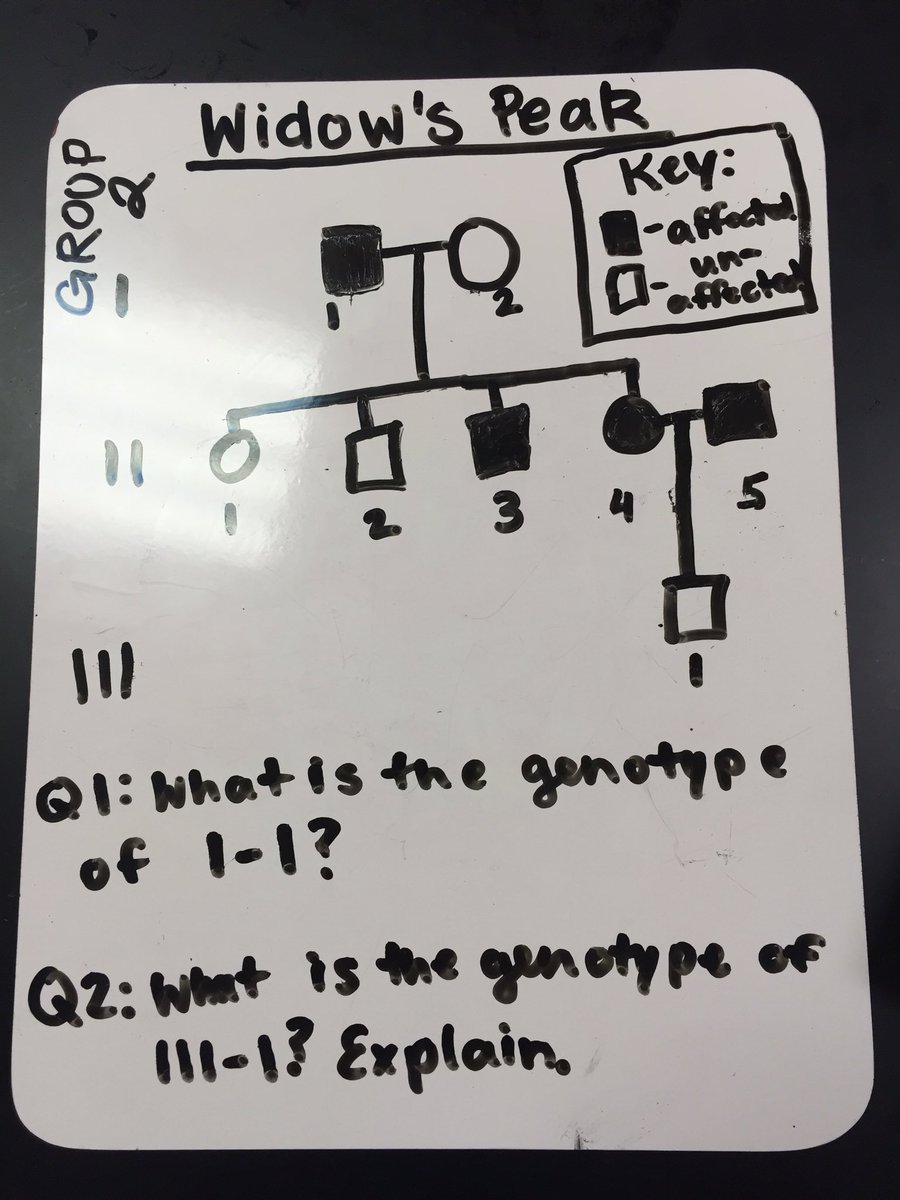 Widow's Peak
GROUP 2
Key:
- affected
- un-
affected
I
1
2
II
1
2
3
4
5
III
1
Q1: What is the genotype
of I-1?
Q2: What is the genotype of
III-1? Explain.